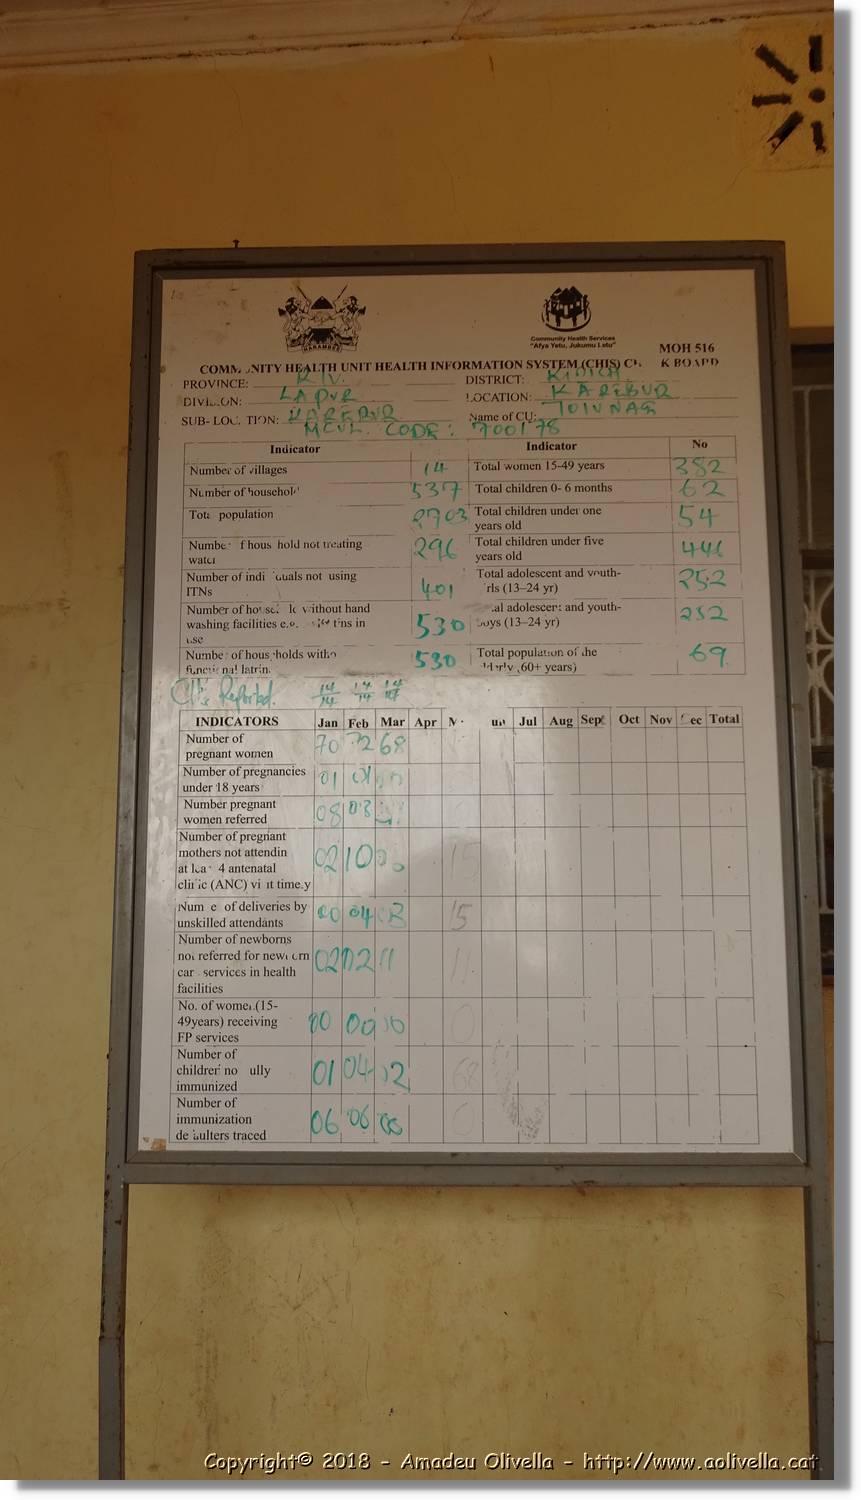 HARAMBEE
Community Health Services
"Afya Yetu, Jukumu Letu"
MOH 516
COMM NITY HEALTH UNIT HEALTH INFORMATION SYSTEM (CHIS) K BOARD
PROVINCE: R.V. DISTRICT:
DIVI ON: LAPUR LOCATION: KAREBUR
SUB- LOC TION: KAREBUR Name of CU:
MCUL CODE: 700178
Indicator Indicator No
Number of villages 14 Total women 15-49 years 382
Number of household 537 Total children 0- 6 months 62
Total population 2703 Total children under one
years old 54
Numbe f hous hold not treating
water 296 Total children under five
years old 446
Number of indi duals not using
ITNs 401 Total adolescent and youth-
rls (13–24 yr) 252
Number of ho without hand
washing facilities e.g. tins in
use 530 al adolescent and youth-
boys (13–24 yr) 252
Number of hous holds witho
functional latrin. 530 Total population of the
elderly (60+ years) 69
Reported. 14/14 14/14 14/14
INDICATORS Jan Feb Mar Apr Jul Aug Sept Oct Nov Dec Total
Number of
pregnant women 70 72 68
Number of pregnancies
under 18 years 01 01
Number pregnant
women referred 08 03
Number of pregnant
mothers not attendin
at lea 4 antenatal
clinic (ANC) vi it timely 02 10 15
Num e of deliveries by
unskilled attendants 00 04 03 15
Number of newborns
not referred for newborn
car services in health
facilities 02 02 11 11
No. of women (15-
49years) receiving
FP services 00 00 0
Number of
children no ully
immunized 01 04 02 68
Number of
immunization
defaulters traced 06 06 0
Copyright© 2018 - Amadeu Olivella - http://www.aolivella.cat